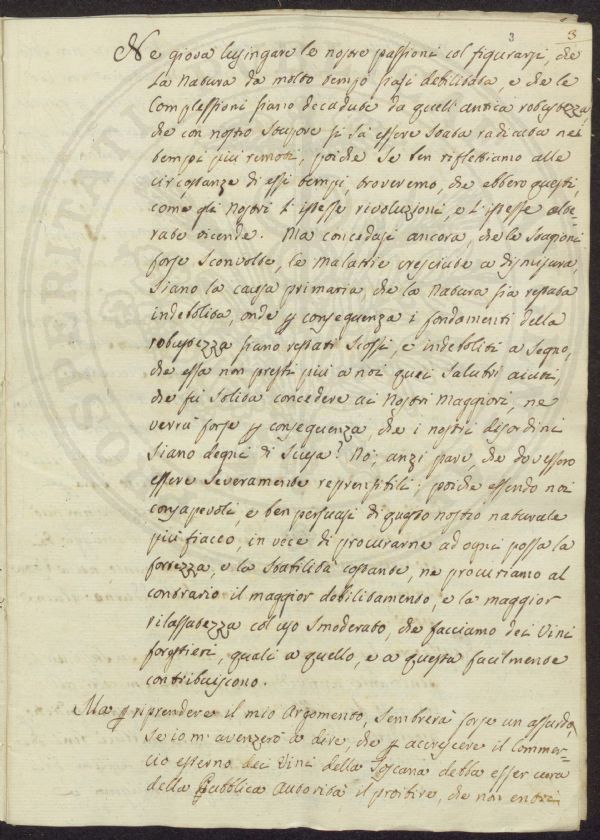 3 3
Ne giova lusingare le nostre passioni col figurarsi, che
La Natura da molto tempo siasi debilitata, e che le
Complessioni siano decadute da quell'antica robustezza,
che con nostro stupore si sà essere stata radicata nei
tempi più remoti, poiche se ben riflettiamo alle
circostanze di essi tempi, troveremo, che ebbero questi,
come gli Nostri l'istesse rivoluzioni, e l'istesse alte-
rate vicende. Ma concedasi ancora, che le stagioni
forse sconvolte, le Malattie cresciute a dismisura,
siano la causa primaria, che la Natura sia restata
indebolita, onde p conseguenza i fondamenti della
robustezza siano restati scossi, e indeboliti a segno,
che essa non presti più a noi quei salutri aiuti,
che fù solita concedere ai Nostri Maggiori, ne
verrà forse p conseguenza, che i nostri disordini
siano degni di scusa? Nò, anzi pare, che dovessero
essere severamente reprensibili; poiche essendo noi
consapevoli, e ben persuasi di questo nostro naturale
più fiacco, in vece di procurarne ad ogni possa la
fortezza, e la stabilità costante, ne procuriamo al
contrario il maggior debilitamento, e la maggior
rilassatezza col uso smoderato, che facciamo dei Vini
forestieri, quali a quello, e a questa facilmente
contribuiscono.
Ma p riprendere il mio Argomento, sembrerà forse un assurdo,
se io m'avenzerò a dire, che p accrescere il Commer-
cio esterno dei Vini della Toscana debba esser cura
della Pubblica Autorità il proibire, che non entri